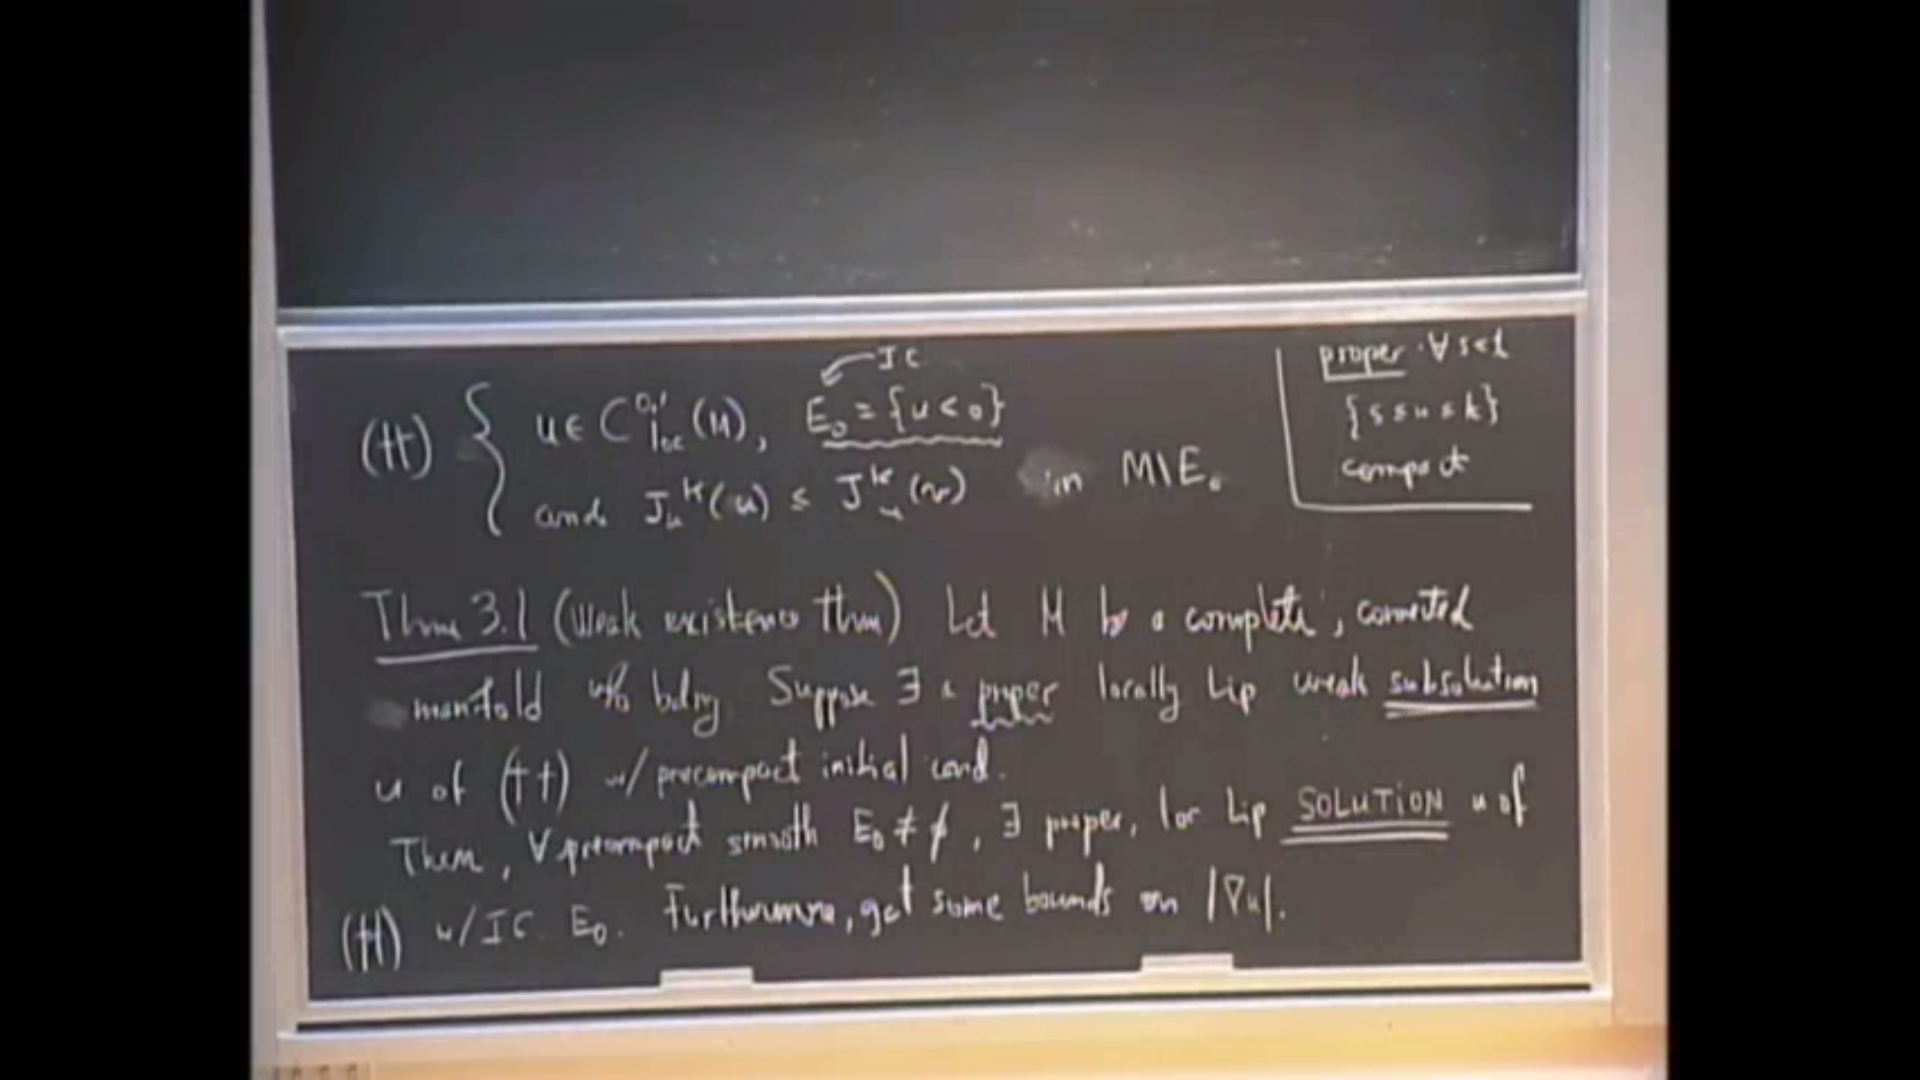 IC
(††) { u ∈ C^{0,1}_{loc}(M), E₀ = {u < 0}
and J_u^K(u) ≤ J_u^K(v) in M\E₀
proper · ∀ s<t
{s ≤ u ≤ t}
compact
Thm 3.1 (Weak existence thm) Let M be a complete, connected
manifold w/o bdry Suppose ∃ a proper locally Lip weak subsolution
u of (††) w/ precompact initial cond.
Then, ∀ precompact smooth E₀ ≠ ∅, ∃ proper, loc Lip SOLUTION u of
(††) w/ IC E₀. Furthermore, get some bounds on |∇u|.